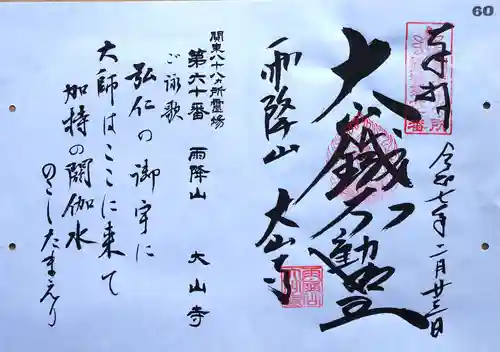 60
奉拝
令和七年二月廿三日
大山鐵不動
雨降山
大山寺
関東八十八ヵ所霊場
第六十番 雨降山 大山寺
ご詠歌
弘仁の御宇に
大師はここに来て
加持の閼伽水
のこしたまえり